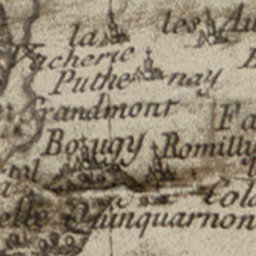 la les Au
Vacherie
Puthe nay
Grandmont Fa
Bougy Romilly
Colo
elle Quinquarnon